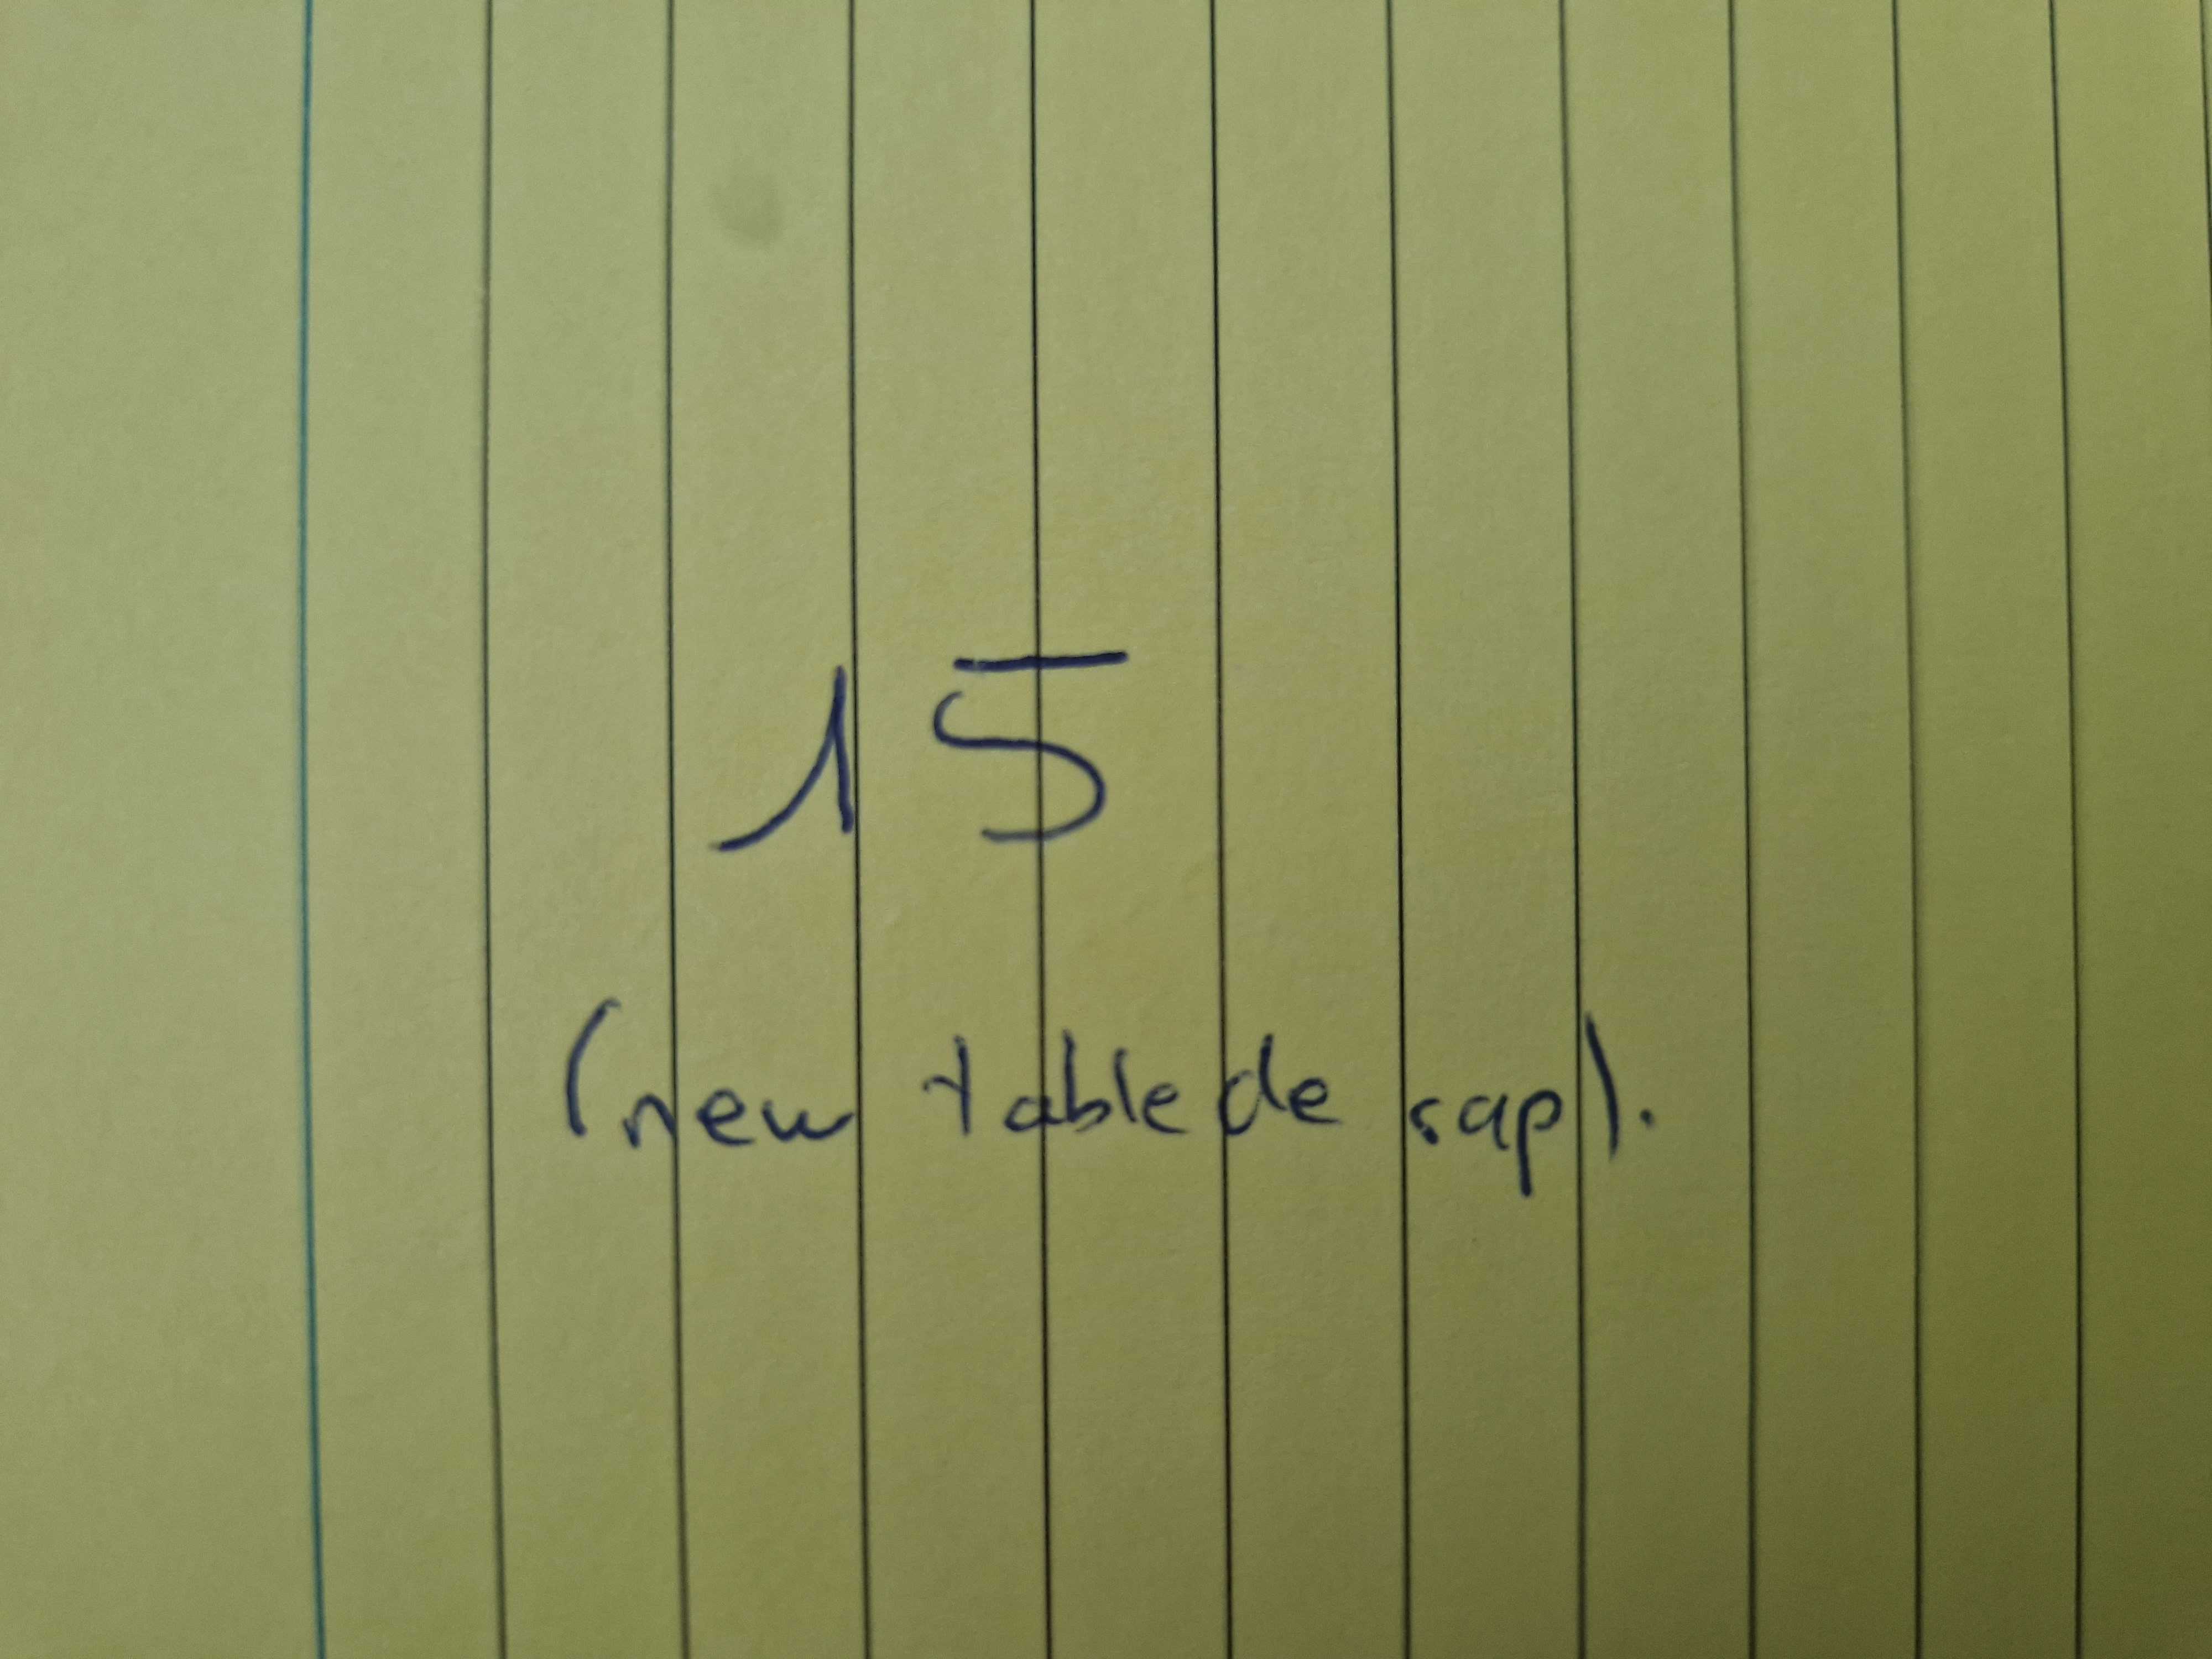 15
(new table de sap).